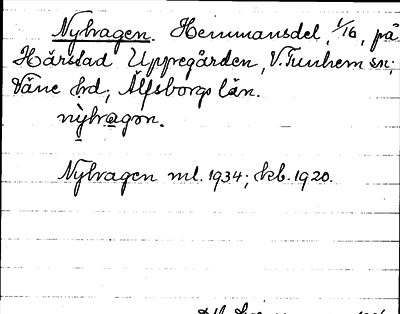 Nyhagen. Hemmansdel, 1/16, på
Hårstad Uppegården, V. Tunhem sn;
Väne hrd; Älfsborgs län.
nỳhagən.
Nyhagen ml. 1934; kb. 1920.